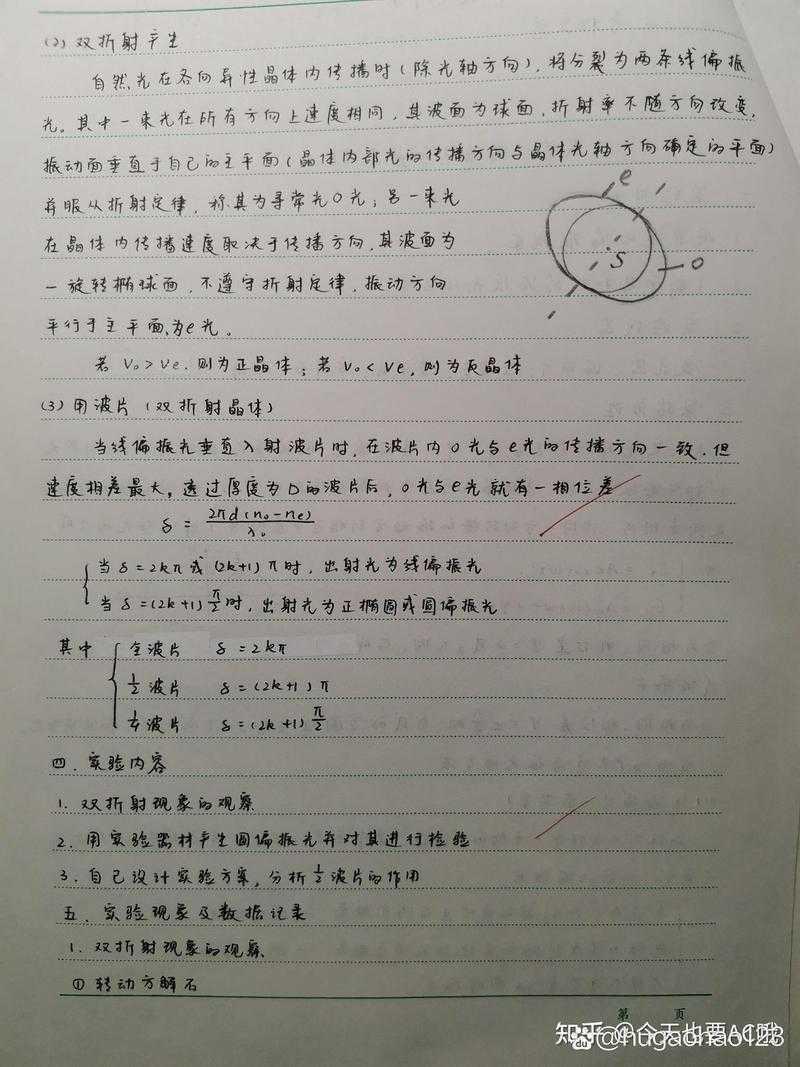 (2) 双折射产生
自然光在各向异性晶体内传播时(除光轴方向),将分裂为两条线偏振
光。其中一束光在所有方向上速度相同,其波面为球面,折射率不随方向改变,
振动面垂直于自己的主平面(晶体内部光的传播方向与晶体光轴方向确定的平面)
并服从折射定律,称其为寻常光O光;另一束光
在晶体内传播速度取决于传播方向,其波面为
一旋转椭球面,不遵守折射定律,振动方向
平行于主平面,为e光。
e
S
o
若 Vo>Ve.则为正晶体;若 Vo<Ve,则为负晶体
(3) 用波片(双折射晶体)
当线偏振光垂直入射波片时,在波片内O光与e光的传播方向一致.但
速度相差最大。透过厚度为D的波片后,O光与e光就有一相位差
δ = 2πd(no-ne)/λo
当δ=2kπ或(2k+1)π时,出射光为线偏振光
当δ=(2k+1)π/2时,出射光为正椭圆或圆偏振光
其中 全波片 δ=2kπ
1/2波片 δ=(2k+1)π
1/4波片 δ=(2k+1)π/2
四.实验内容
1.双折射现象的观察
2.用实验器材产生圆偏振光并对其进行检验
3.自己设计实验方案,分析1/2波片的作用
五.实验现象及数据记录
1.双折射现象的观察
①转动方解石
第 页
知乎 @今天也要AC哦